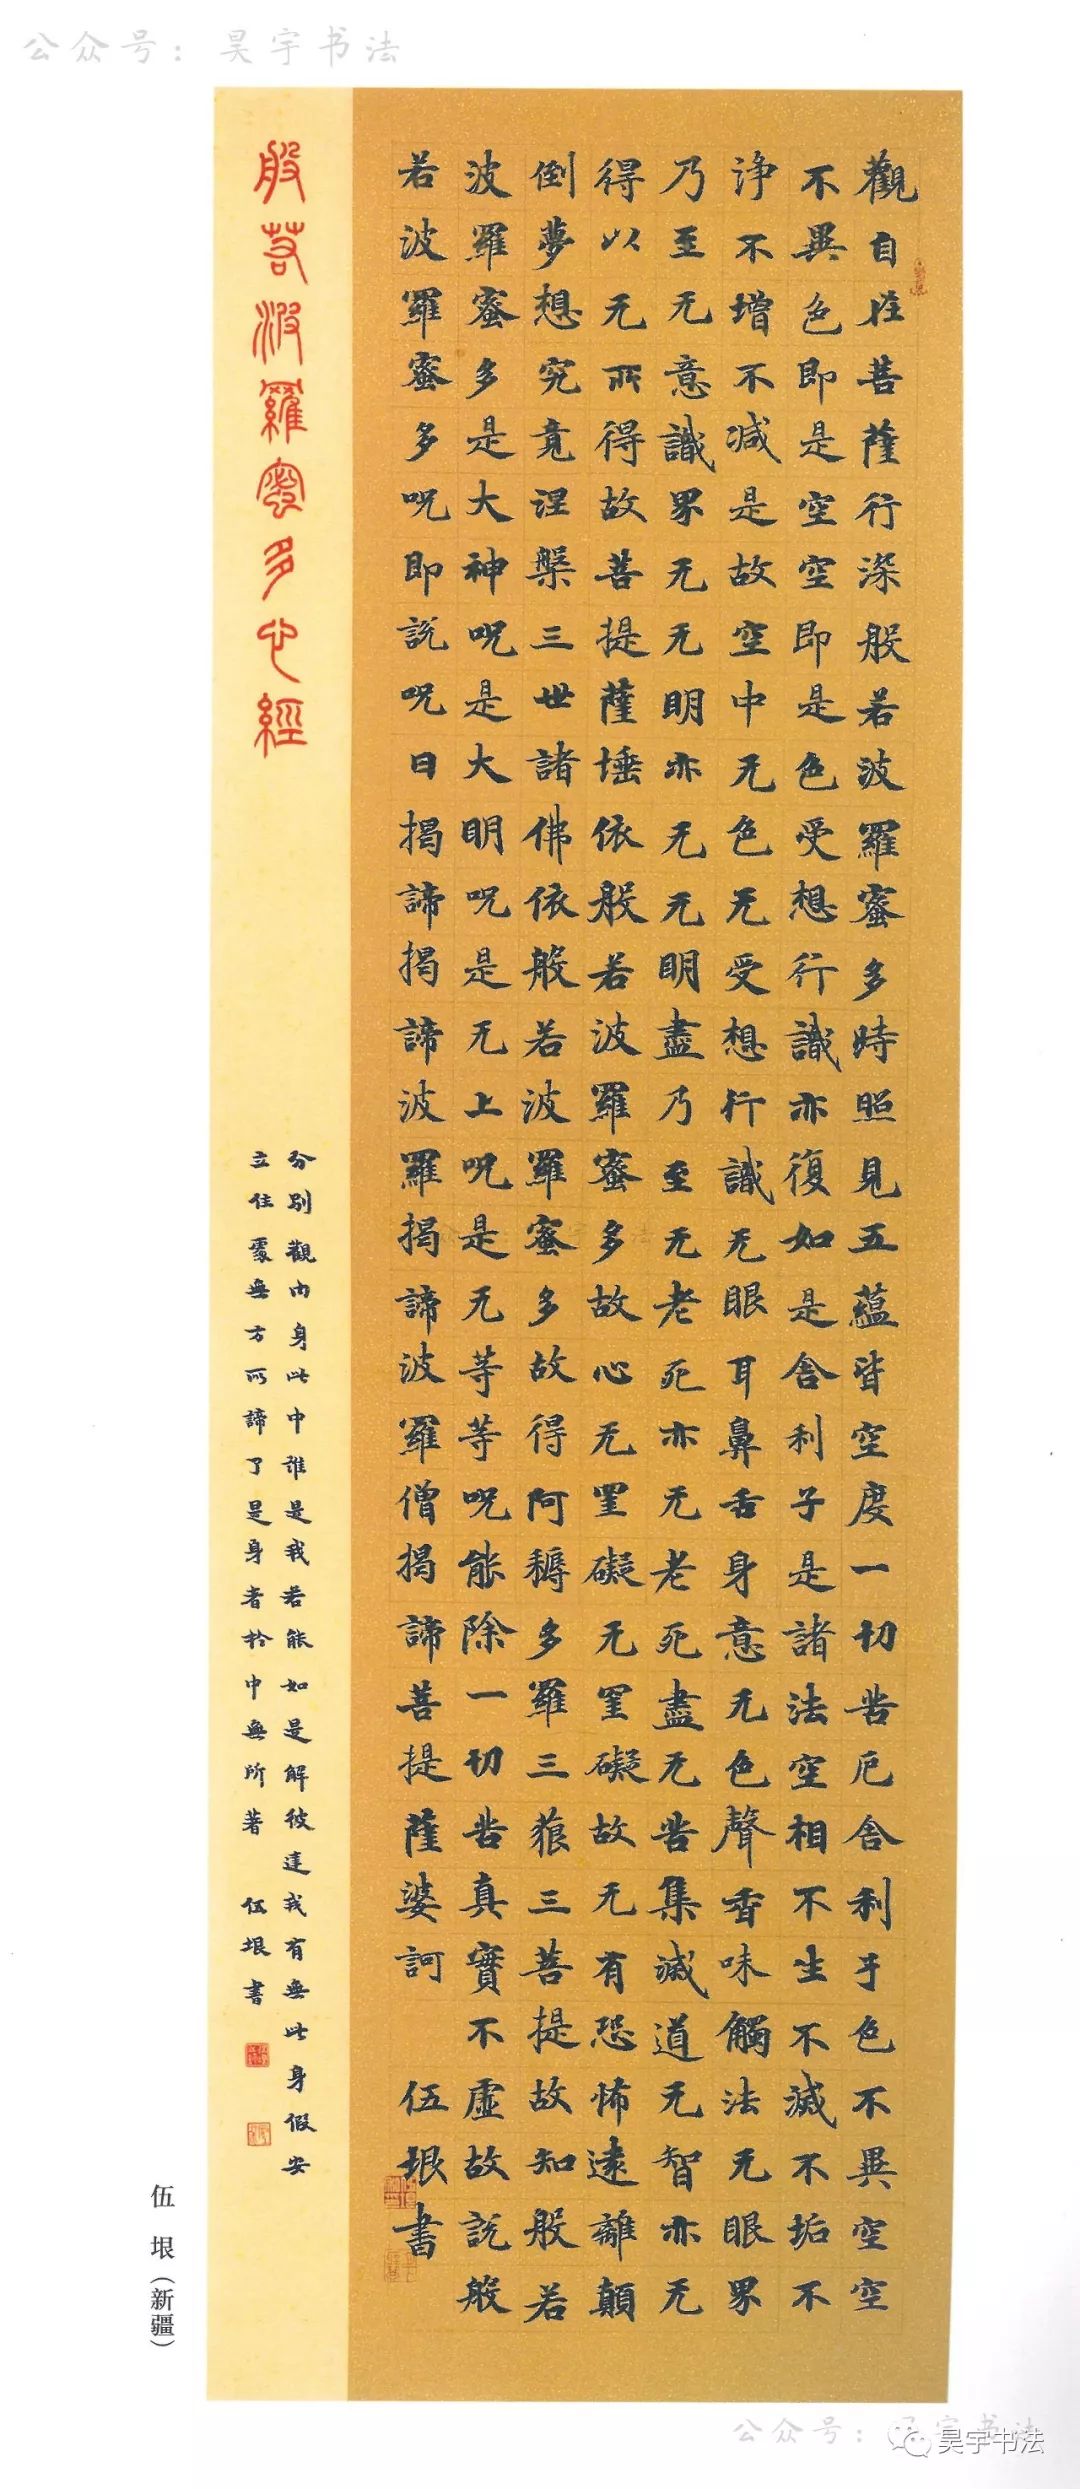 公众号：昊宇书法
觀自在菩薩行深般若波羅蜜多時照見五蘊皆空度一切苦厄舍利子色不異空空
不異色即是空空即是色受想行識亦復如是舍利子是諸法空相不生不滅不垢不
淨不增不減是故空中无色无受想行識无眼耳鼻舌身意无色聲香味觸法无眼界
乃至无意識界无无明亦无无明盡乃至无老死亦无老死盡无苦集滅道无智亦无
得以无所得故菩提薩埵依般若波羅蜜多故心无罣礙无罣礙故无有恐怖遠離顛
倒夢想究竟涅槃三世諸佛依般若波羅蜜多故得阿耨多羅三藐三菩提故知般若
波羅蜜多是大神呪是大明呪是无上呪是无等等呪能除一切苦真實不虛故說般
若波羅蜜多呪即說呪曰揭諦揭諦波羅揭諦波羅僧揭諦菩提薩婆訶 伍垠書
般若波羅蜜多心經
分別觀內身此中誰是我若能如是解彼達我有無此身假安
立住處無方所諦了是身者於中無所著 伍垠書
伍垠（新疆）
公众号：昊宇书法
昊宇书法